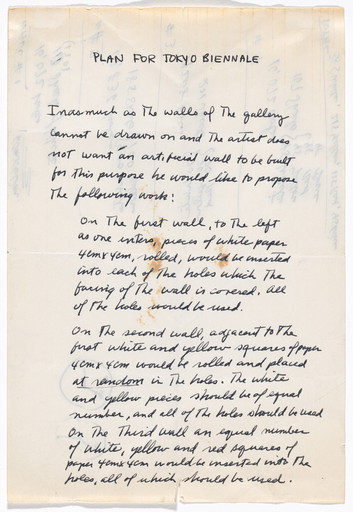 PLAN FOR TOKYO BIENNALE
Inasmuch as the walls of the gallery
cannot be drawn on and the artist does
not want an artificial wall to be built
for this purpose he would like to propose
the following work:
On the first wall, to the left
as one enters, pieces of white paper
4cm x 4cm, rolled, would be inserted
into each of the holes which the
facing of the wall is covered. All
of the holes would be used.
On the second wall, adjacent to the
first white and yellow squares of paper
4cm x 4cm would be rolled and placed
at random in the holes. The white
and yellow pieces should be of equal
number, and all of the holes should be used
On the third wall an equal number
of white, yellow and red squares of
paper 4cm x 4cm would be inserted into the
holes, all of which should be used.